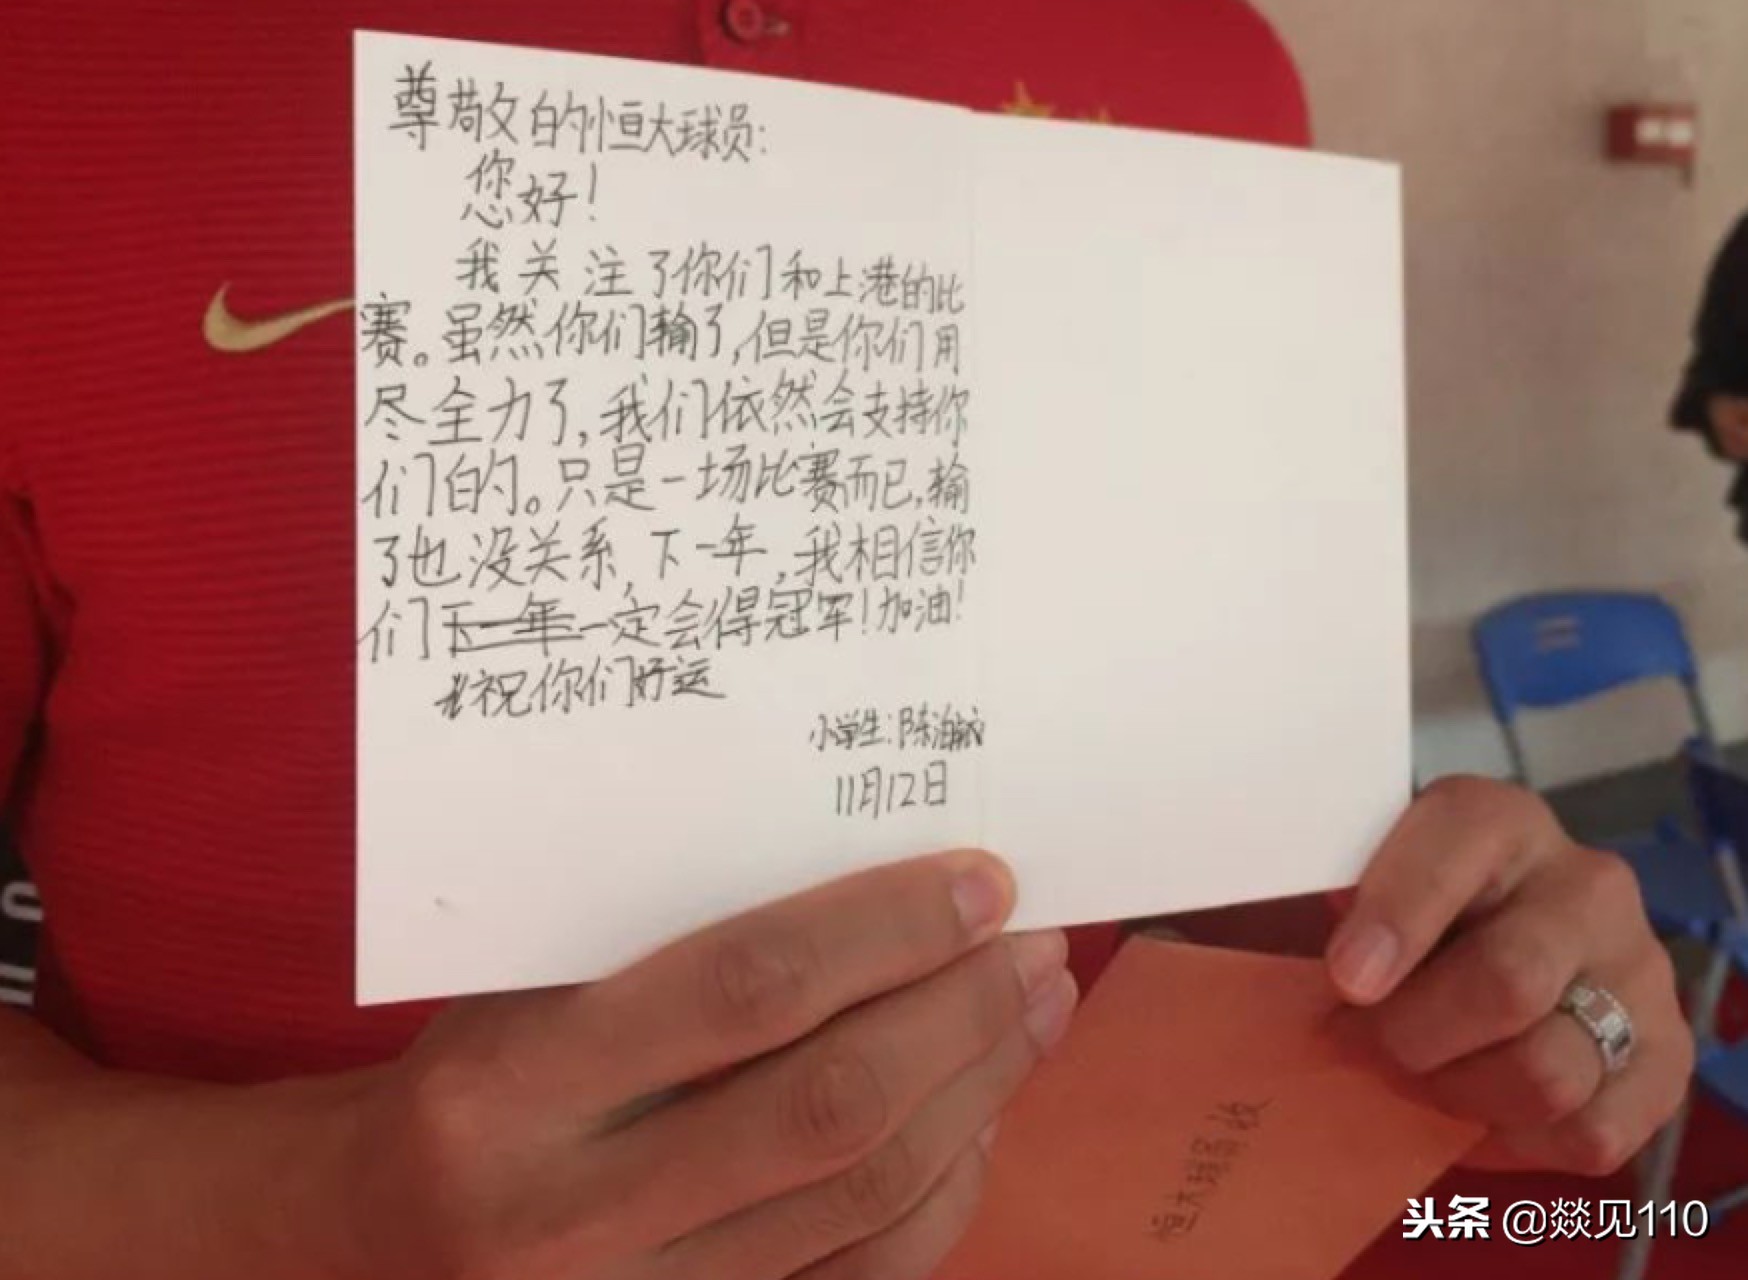 尊敬的恒大球员：
您好！
我关注了你们和上港的比
赛。虽然你们输了，但是你们用
尽全力了，我们依然会支持你
们的。只是一场比赛而已，输
了也没关系，下一年，我相信你
们下一年一定会得冠军！加油！
祝你们好运
小学生：陈泊
11月12日
恒大球员收
头条 @燚见110